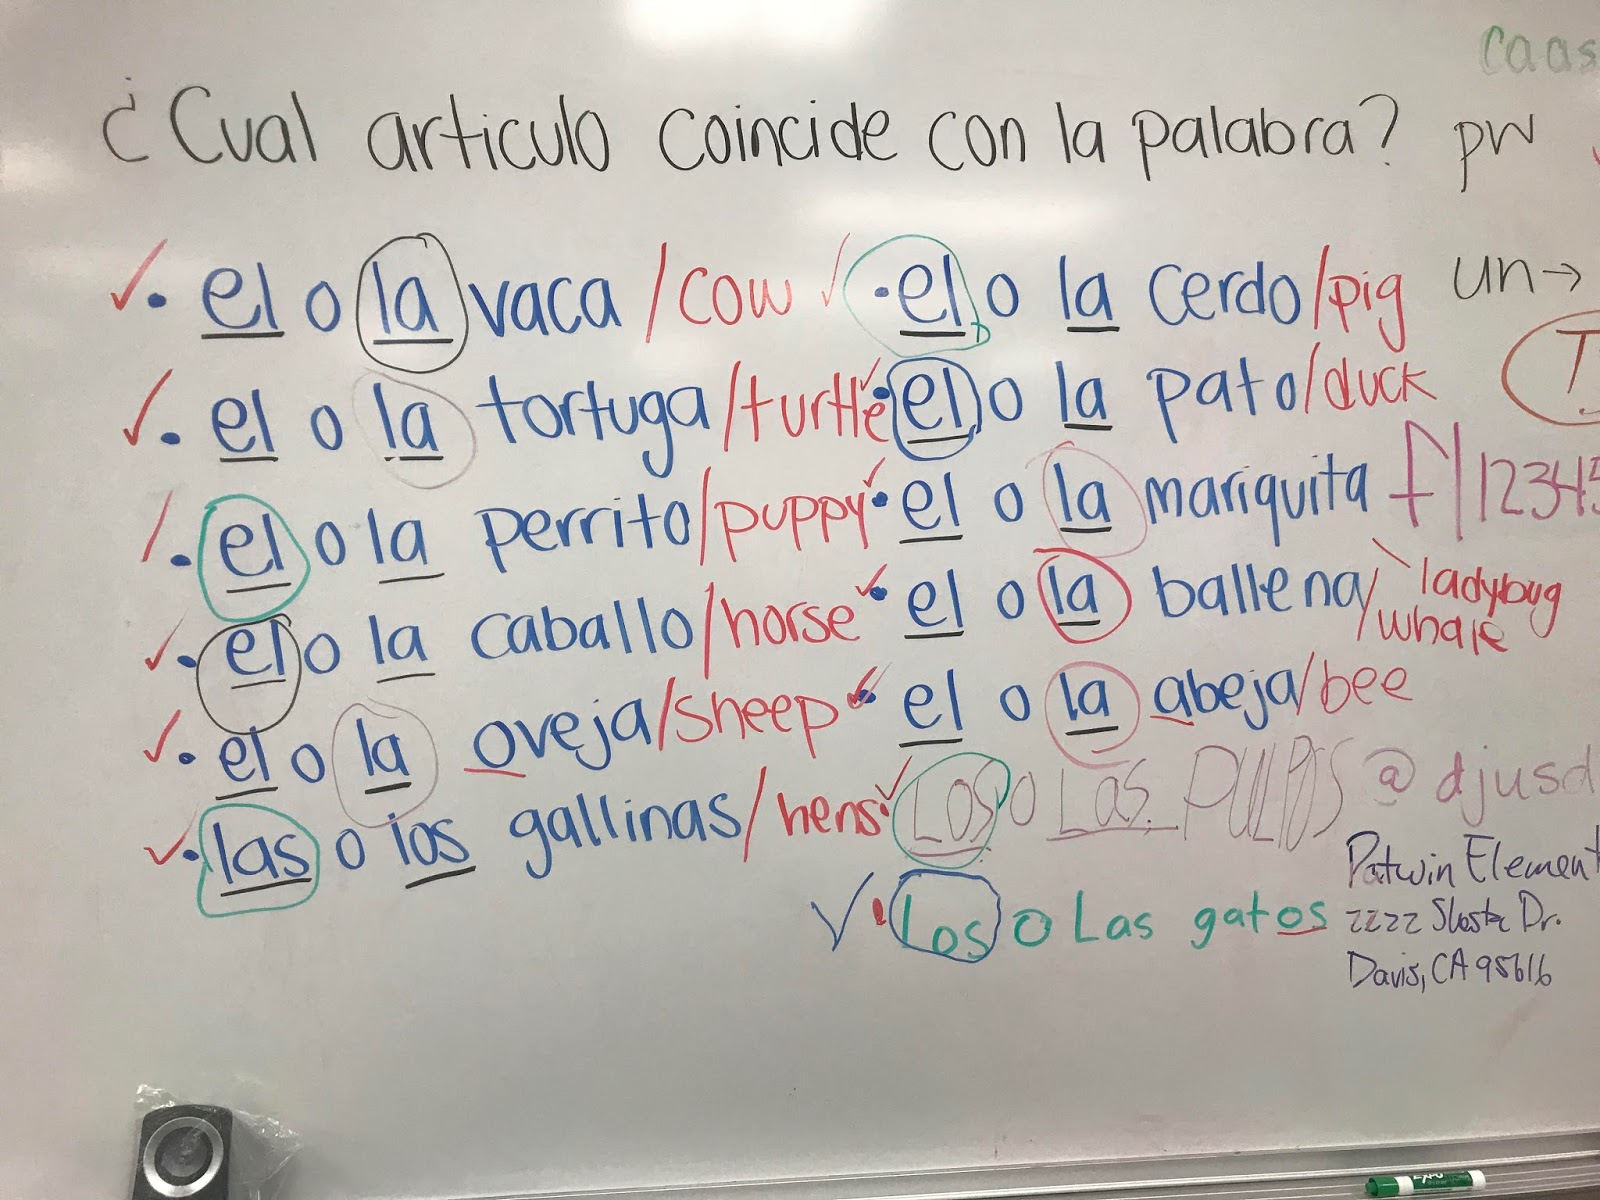 caas
¿Cual articulo coincide con la palabra? pw
• el o la vaca /cow
• el o la cerdo/pig
un→
• el o la tortuga/turtle
• el o la pato/duck
T
• el o la perrito/puppy
• el o la mariquita
f/12345
ladybug
• el o la caballo/horse
• el o la ballena/whale
• el o la oveja/sheep
• el o la abeja/bee
• las o los gallinas/hens
Los o Las PULPOS
@djusd
• Los o Las gatos
Patwin Element
2222 Shasta Dr.
Davis, CA 95616
EXPO